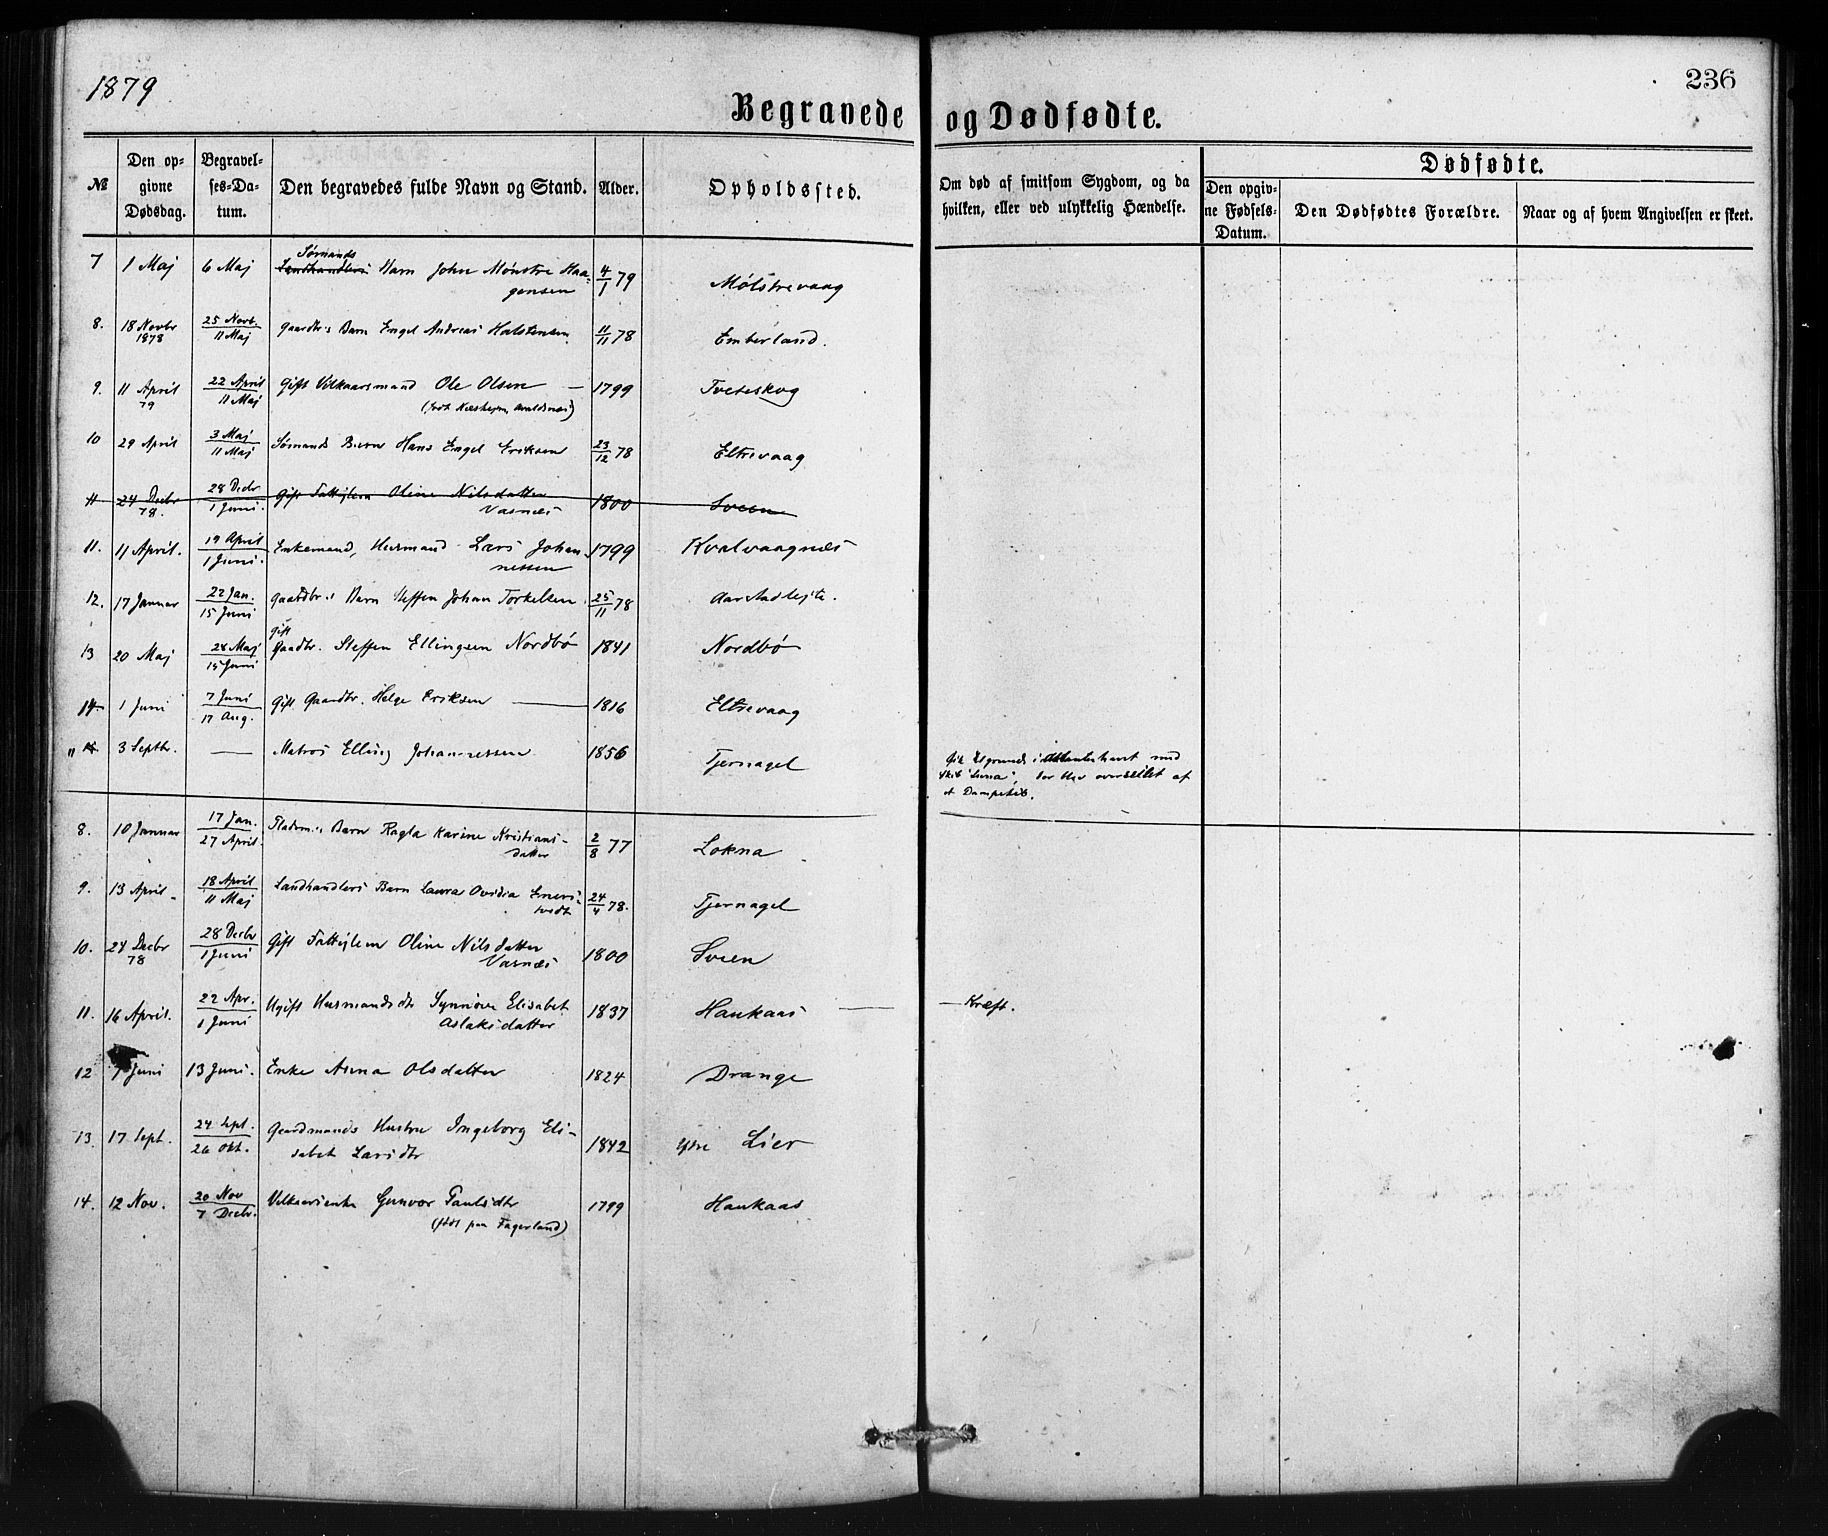 1879
236
Begravede og Dødfødte.
№
Den opgivne Dødsdag.
Begravelses-Datum.
Den begravedes fulde Navn og Stand.
Alder.
Opholdssted.
Om død af smitsom Sygdom, og da hvilken, eller ved ulykkelig Hændelse.
Dødfødte.
Den opgivne Fødsels-Datum.
Den Dødfødtes Forældre.
Naar og af hvem Angivelsen er skeet.
7 1 Maj 6 Maj Sømands Landhandlers Barn John Mønstre Haagensen 4/1 79 Mølstrevaag
8. 18 Novbr 1878 25 Novb. 11 Maj Gaardbr.s Barn Engel Andreas Halstensen 11/11 78 Emberland.
9. 11 April 79 22 April 11 Maj Gift Vilkaarsmand Ole Olsen — 1799 Tveteskog
(født Næshejm, Avaldsnæs)
10 29 April 3 Maj 11 Maj Sømands Barn Hans Engel Eriksen 23/12 78 Eltrevaag
11 24 Decbr 78. 28 Decbr 1 Juni. Gift Fattiglem Oline Nilsdatter Vasnæs 1800 Sveen
11. 11 April. 19 April 1 Juni. Enkemand, Husmand Lars Johannessen 1799 Kvalvaagnæs
12. 17 Januar 22 Jan. 15 Juni Gaardbr.s Barn Steffen Johan Torkelsen. 25/11 78 Aarstadlejte.
13 20 Maj 28 Maj 15 Juni Gift Gaardbr. Steffen Ellingsen Nordbø 1841 Nordbø
14 1 Juni 7 Juni 17 Aug. Gift Gaardbr. Helge Eriksen — 1816 Eltrevaag
" 15 3 Septbr. — Matros Elling Johannessen 1856 Tjernagel
Gik tilgrunds i Atlanterhavet med
Skib "Luna", der blev overseilet af
et Dampskib.
8. 10 Januar 17 Jan. 27 April. Pladsm.s Barn Ragla Karine Kristiansdatter 2/8 77 Lokna
9. 13 April 18 April 11 Maj Landhandlers Barn Laura Ovidia Enersvedt 24/4 78. Tjernagel
10. 24 Decbr 78 28 Decbr 1 Juni Gift Fattiglem Oline Nilsdatter Vasnæs 1800 Sveen
11. 16 April. 22 Apr. 1 Juni Ugift Husmandsdtr Synnøve Elisabet Aslaksdatter 1837 Haukaas — Kræft.
12 7 Juni 13 Juni. Enke Anna Olsdatter 1824 Drange
13. 17 Sept. 24 Sept. 26 Okt. Gaardmands Hustru Ingeborg Elisabet Larsdtr 1842 ytre Lier
14. 12 Nov. 20 Nov 7 Decbr. Vilkaarsenke Gunvor Paulsdtr 1799 Haukaas
(født paa Fagerland)